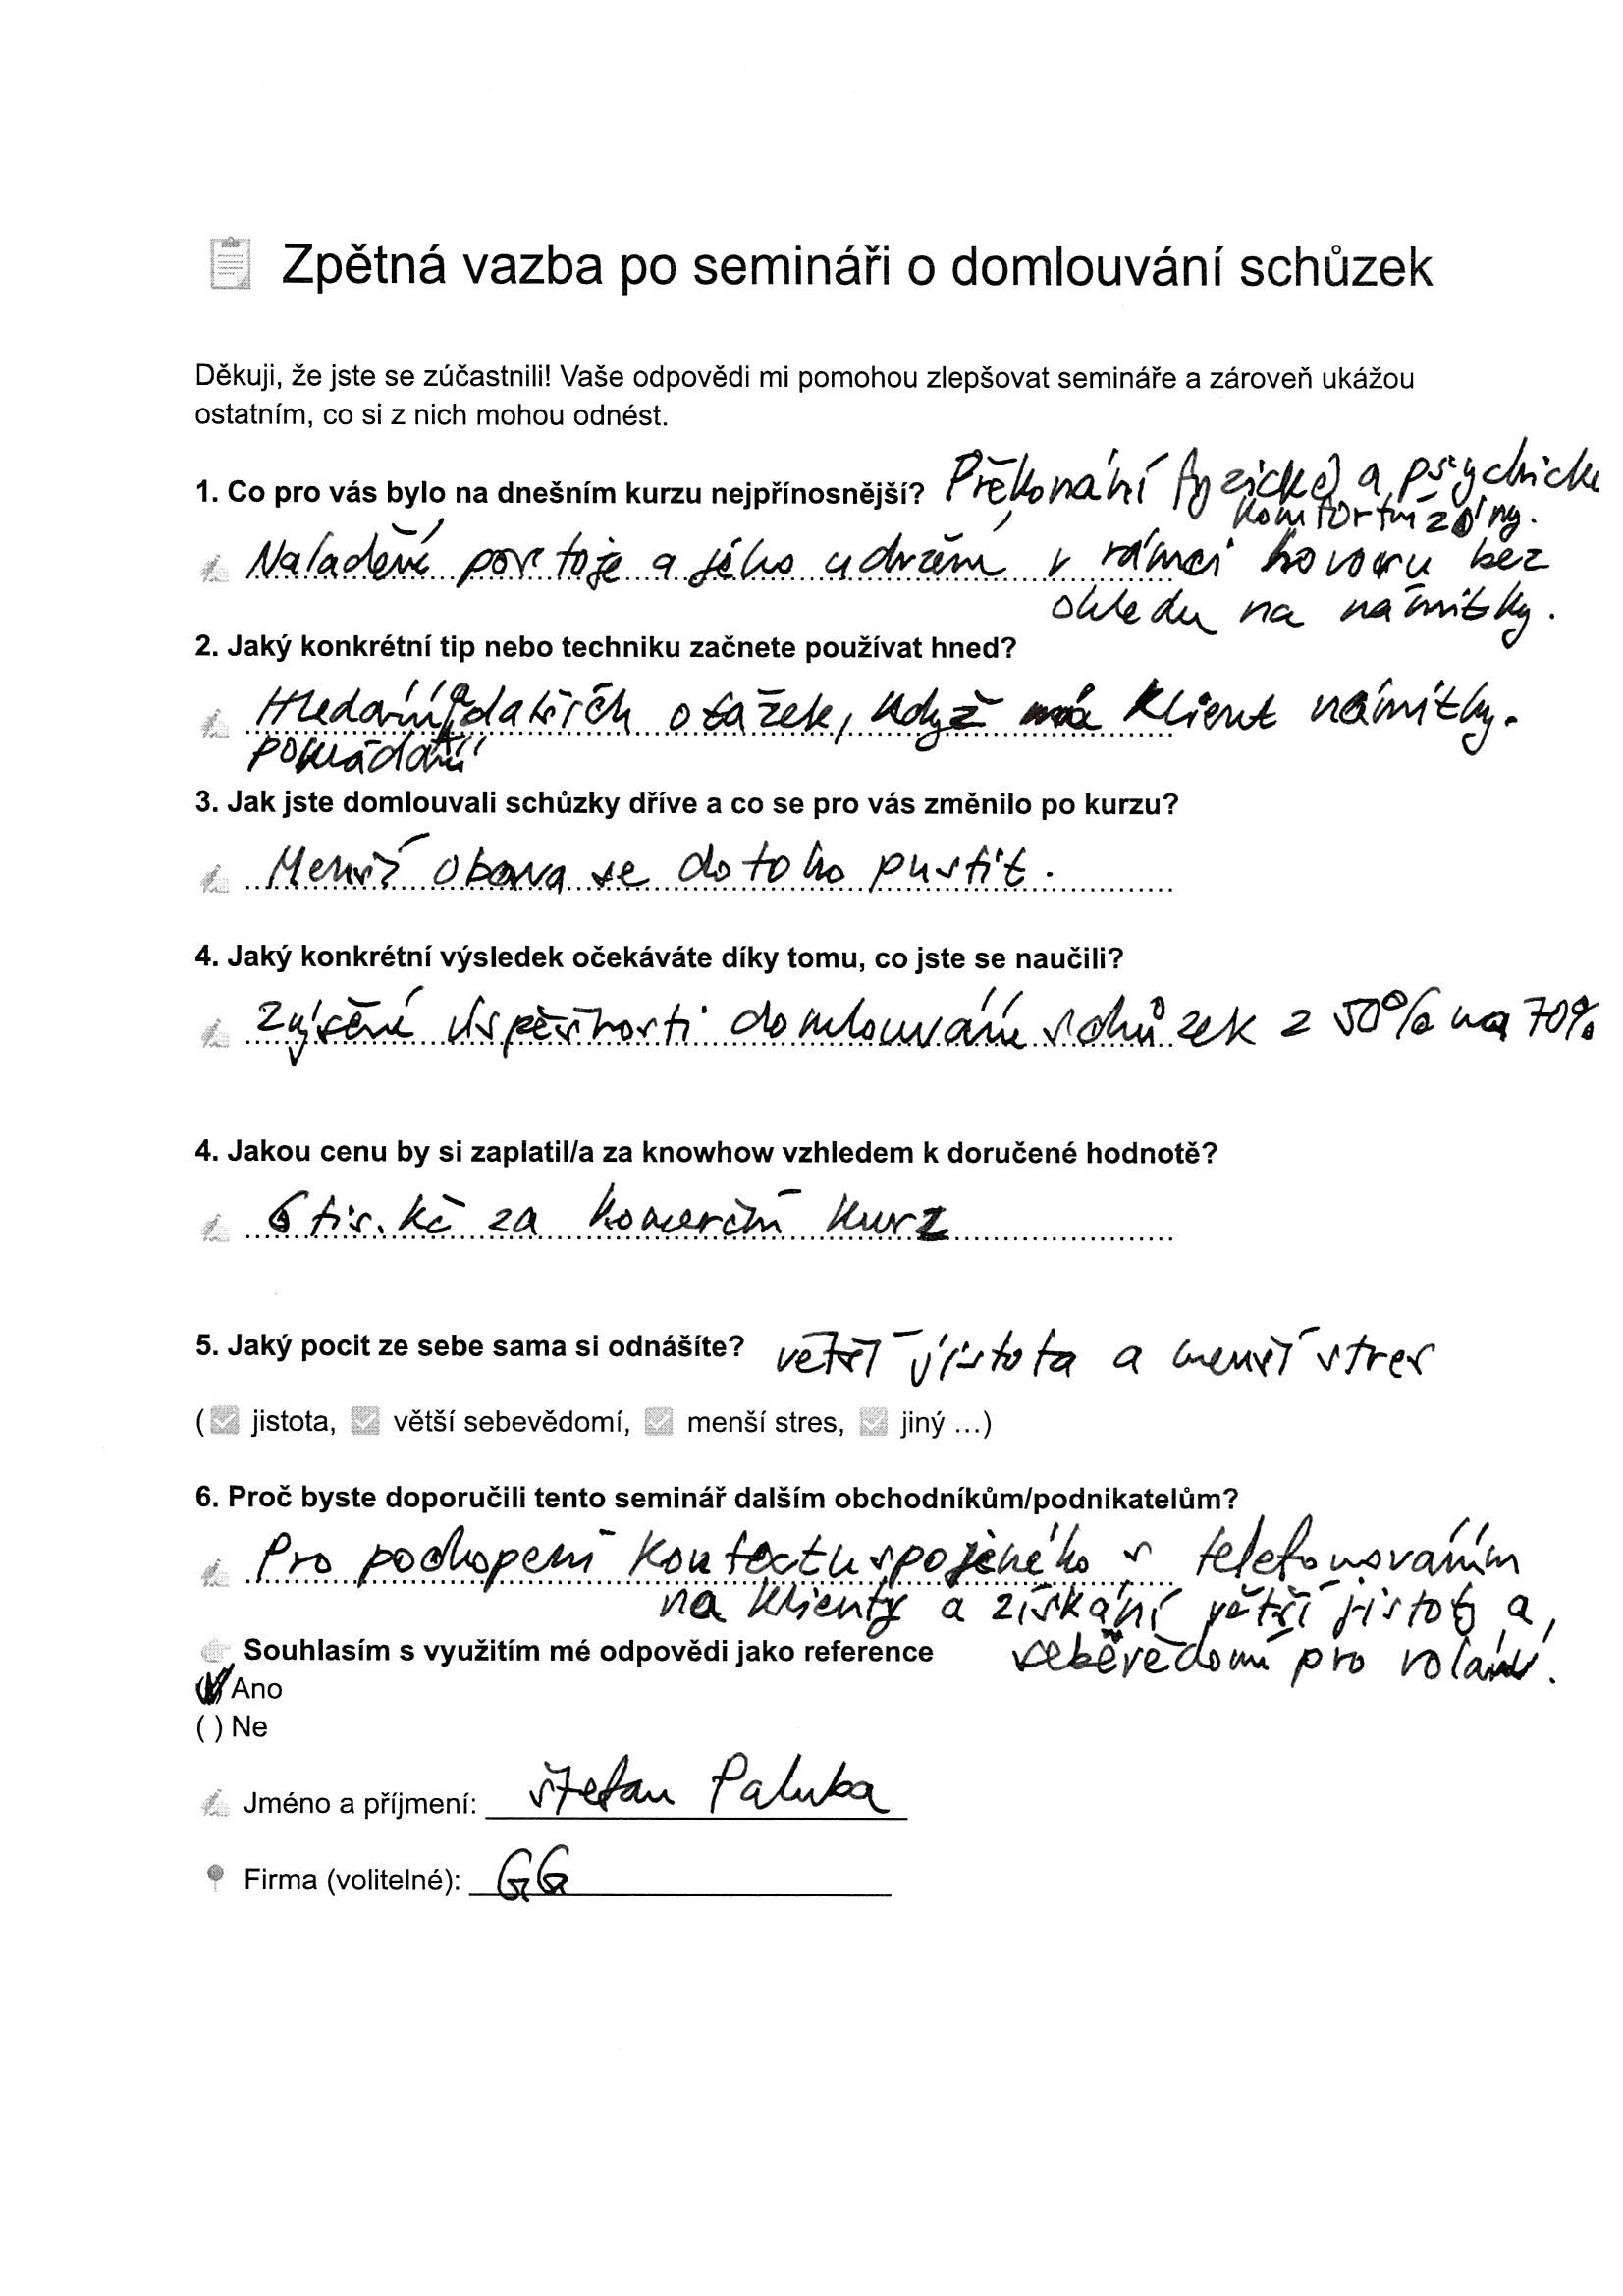 Zpětná vazba po semináři o domlouvání schůzek
Děkuji, že jste se zúčastnili! Vaše odpovědi mi pomohou zlepšovat semináře a zároveň ukážou
ostatním, co si z nich mohou odnést.
1. Co pro vás bylo na dnešním kurzu nejpřínosnější? Překonání fyzické a psychické
komfortní zóny.
Naladění postoje a jeho udržení v rámci hovoru bez
ohledu na námitky.
2. Jaký konkrétní tip nebo techniku začnete používat hned?
Hledání a dalších otázek, když má klient námitky.
pokládání
3. Jak jste domlouvali schůzky dříve a co se pro vás změnilo po kurzu?
Menší obava se do toho pustit.
4. Jaký konkrétní výsledek očekáváte díky tomu, co jste se naučili?
Zvýšení úspěšnosti domlouvání schůzek z 50% na 70%
4. Jakou cenu by si zaplatil/a za knowhow vzhledem k doručené hodnotě?
6 tis. Kč za komerční kurz
5. Jaký pocit ze sebe sama si odnášíte? větší jistota a menší stres
( jistota, větší sebevědomí, menší stres, jiný ...)
6. Proč byste doporučili tento seminář dalším obchodníkům/podnikatelům?
Pro pochopení kontextu spojeného s telefonováním
na klienty a získání větší jistoty a
Souhlasím s využitím mé odpovědi jako reference sebevědomí pro volání.
(x) Ano
( ) Ne
Jméno a příjmení: Štefan Paluba
Firma (volitelné): GG